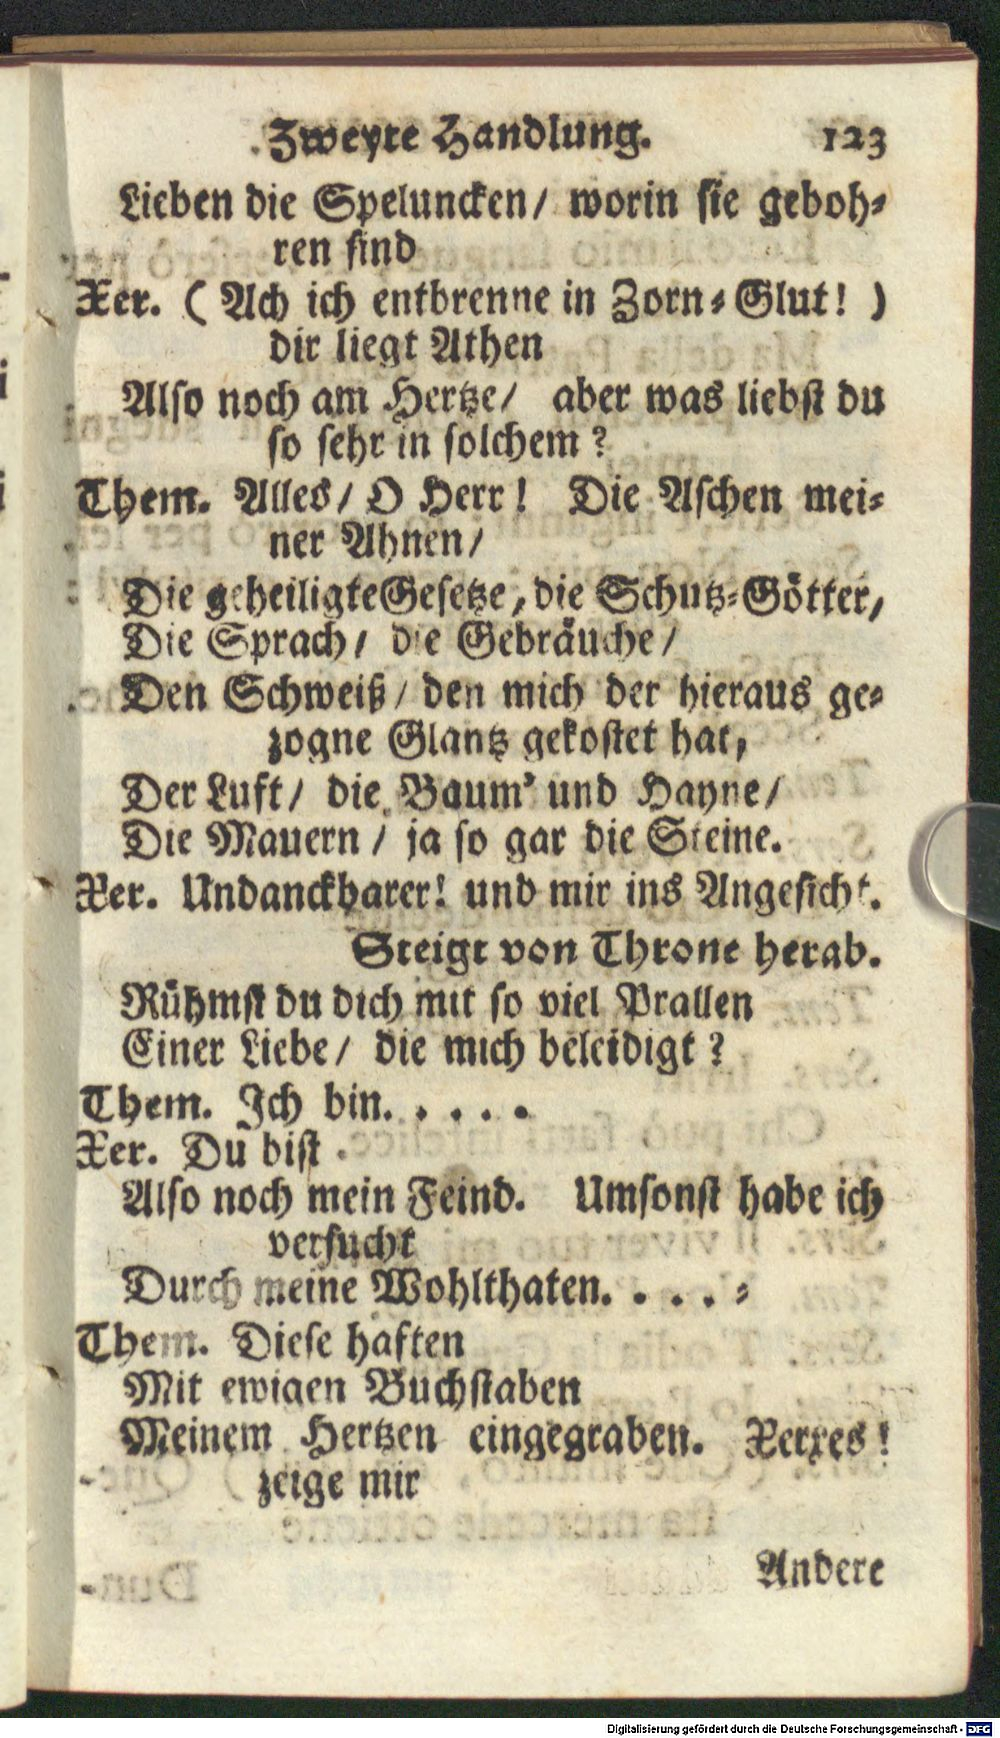 Zweyte Handlung. 123
Lieben die Speluncken/ worin sie geboh-
ren sind
Xer. ( Ach ich entbrenne in Zorn-Glut! )
dir liegt Athen
Also noch am Hertze/ aber was liebst du
so sehr in solchem?
Them. Alles/ O Herr! Die Aschen mei-
ner Ahnen/
Die geheiligte Gesetze, die Schutz-Götter,
Die Sprach/ die Gebräuche/
Den Schweiß/ den mich der hieraus ge-
zogne Glantz gekostet hat,
Der Luft/ die Baum' und Hayne/
Die Mauern/ ja so gar die Steine.
Xer. Undanckbarer! und mir ins Angesicht.
Steigt von Throne herab.
Rühmst du dich mit so viel Prallen
Einer Liebe/ die mich beleidigt?
Them. Ich bin. . . . .
Xer. Du bist .
Also noch mein Feind. Umsonst habe ich
versucht
Durch meine Wohlthaten. . . . -
Them. Diese haften
Mit ewigen Buchstaben
Meinem Hertzen eingegraben. Xerxes!
zeige mir
Andere
Digitalisierung gefördert durch die Deutsche Forschungsgemeinschaft - DFG